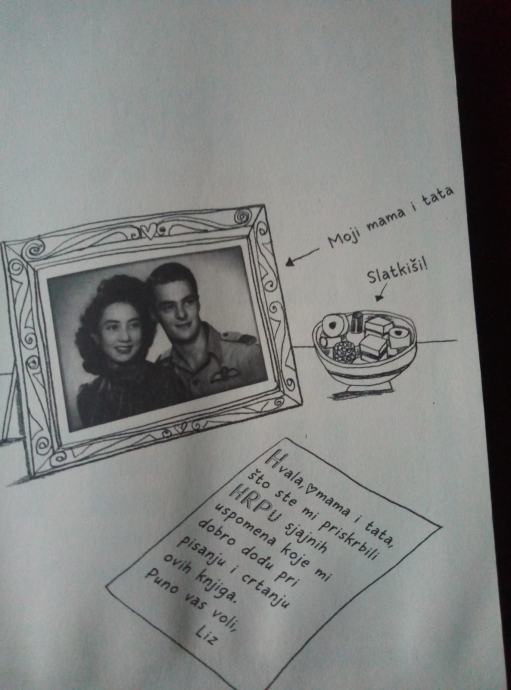 Moji mama i tata
Slatkiši!
Hvala,♡mama i tata,
što ste mi priskrbili
HRPU sjajnih
uspomena koje mi
dobro dođu pri
pisanju i crtanju
ovih knjiga.
Puno vas voli,
Liz